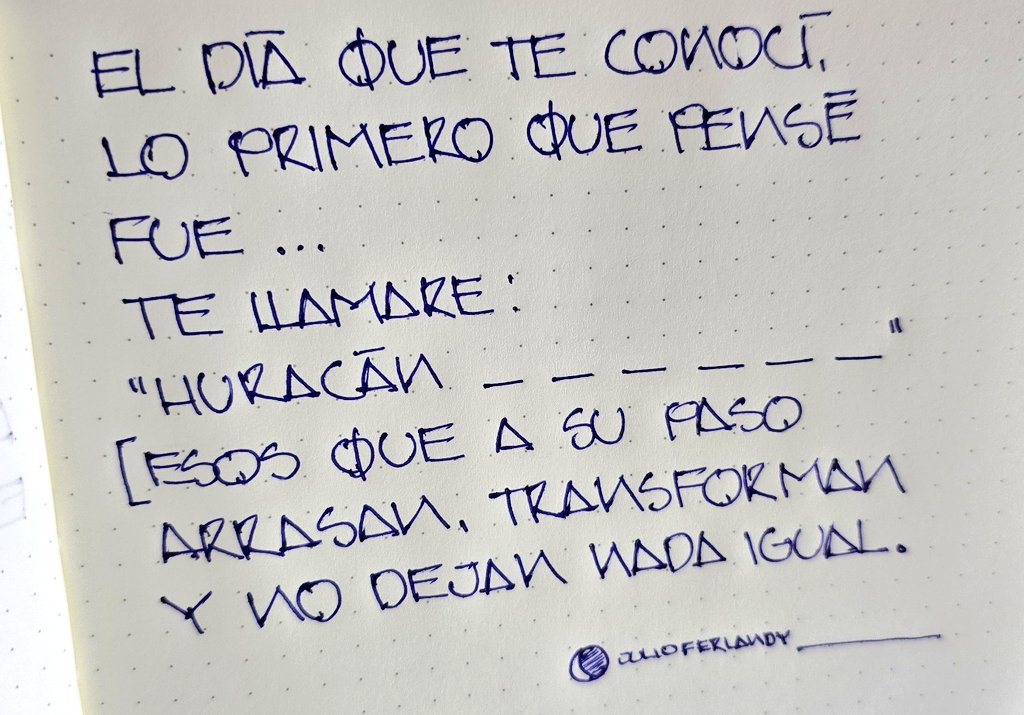 EL DÍA QUE TE CONOCÍ,
LO PRIMERO QUE PENSÉ
FUE ...
TE LLAMARE:
"HURACÁN _ _ _ _ _ _"
[ESOS QUE A SU PASO
ARRASAN, TRANSFORMAN
Y NO DEJAN NADA IGUAL.
JULIOFERLANDY